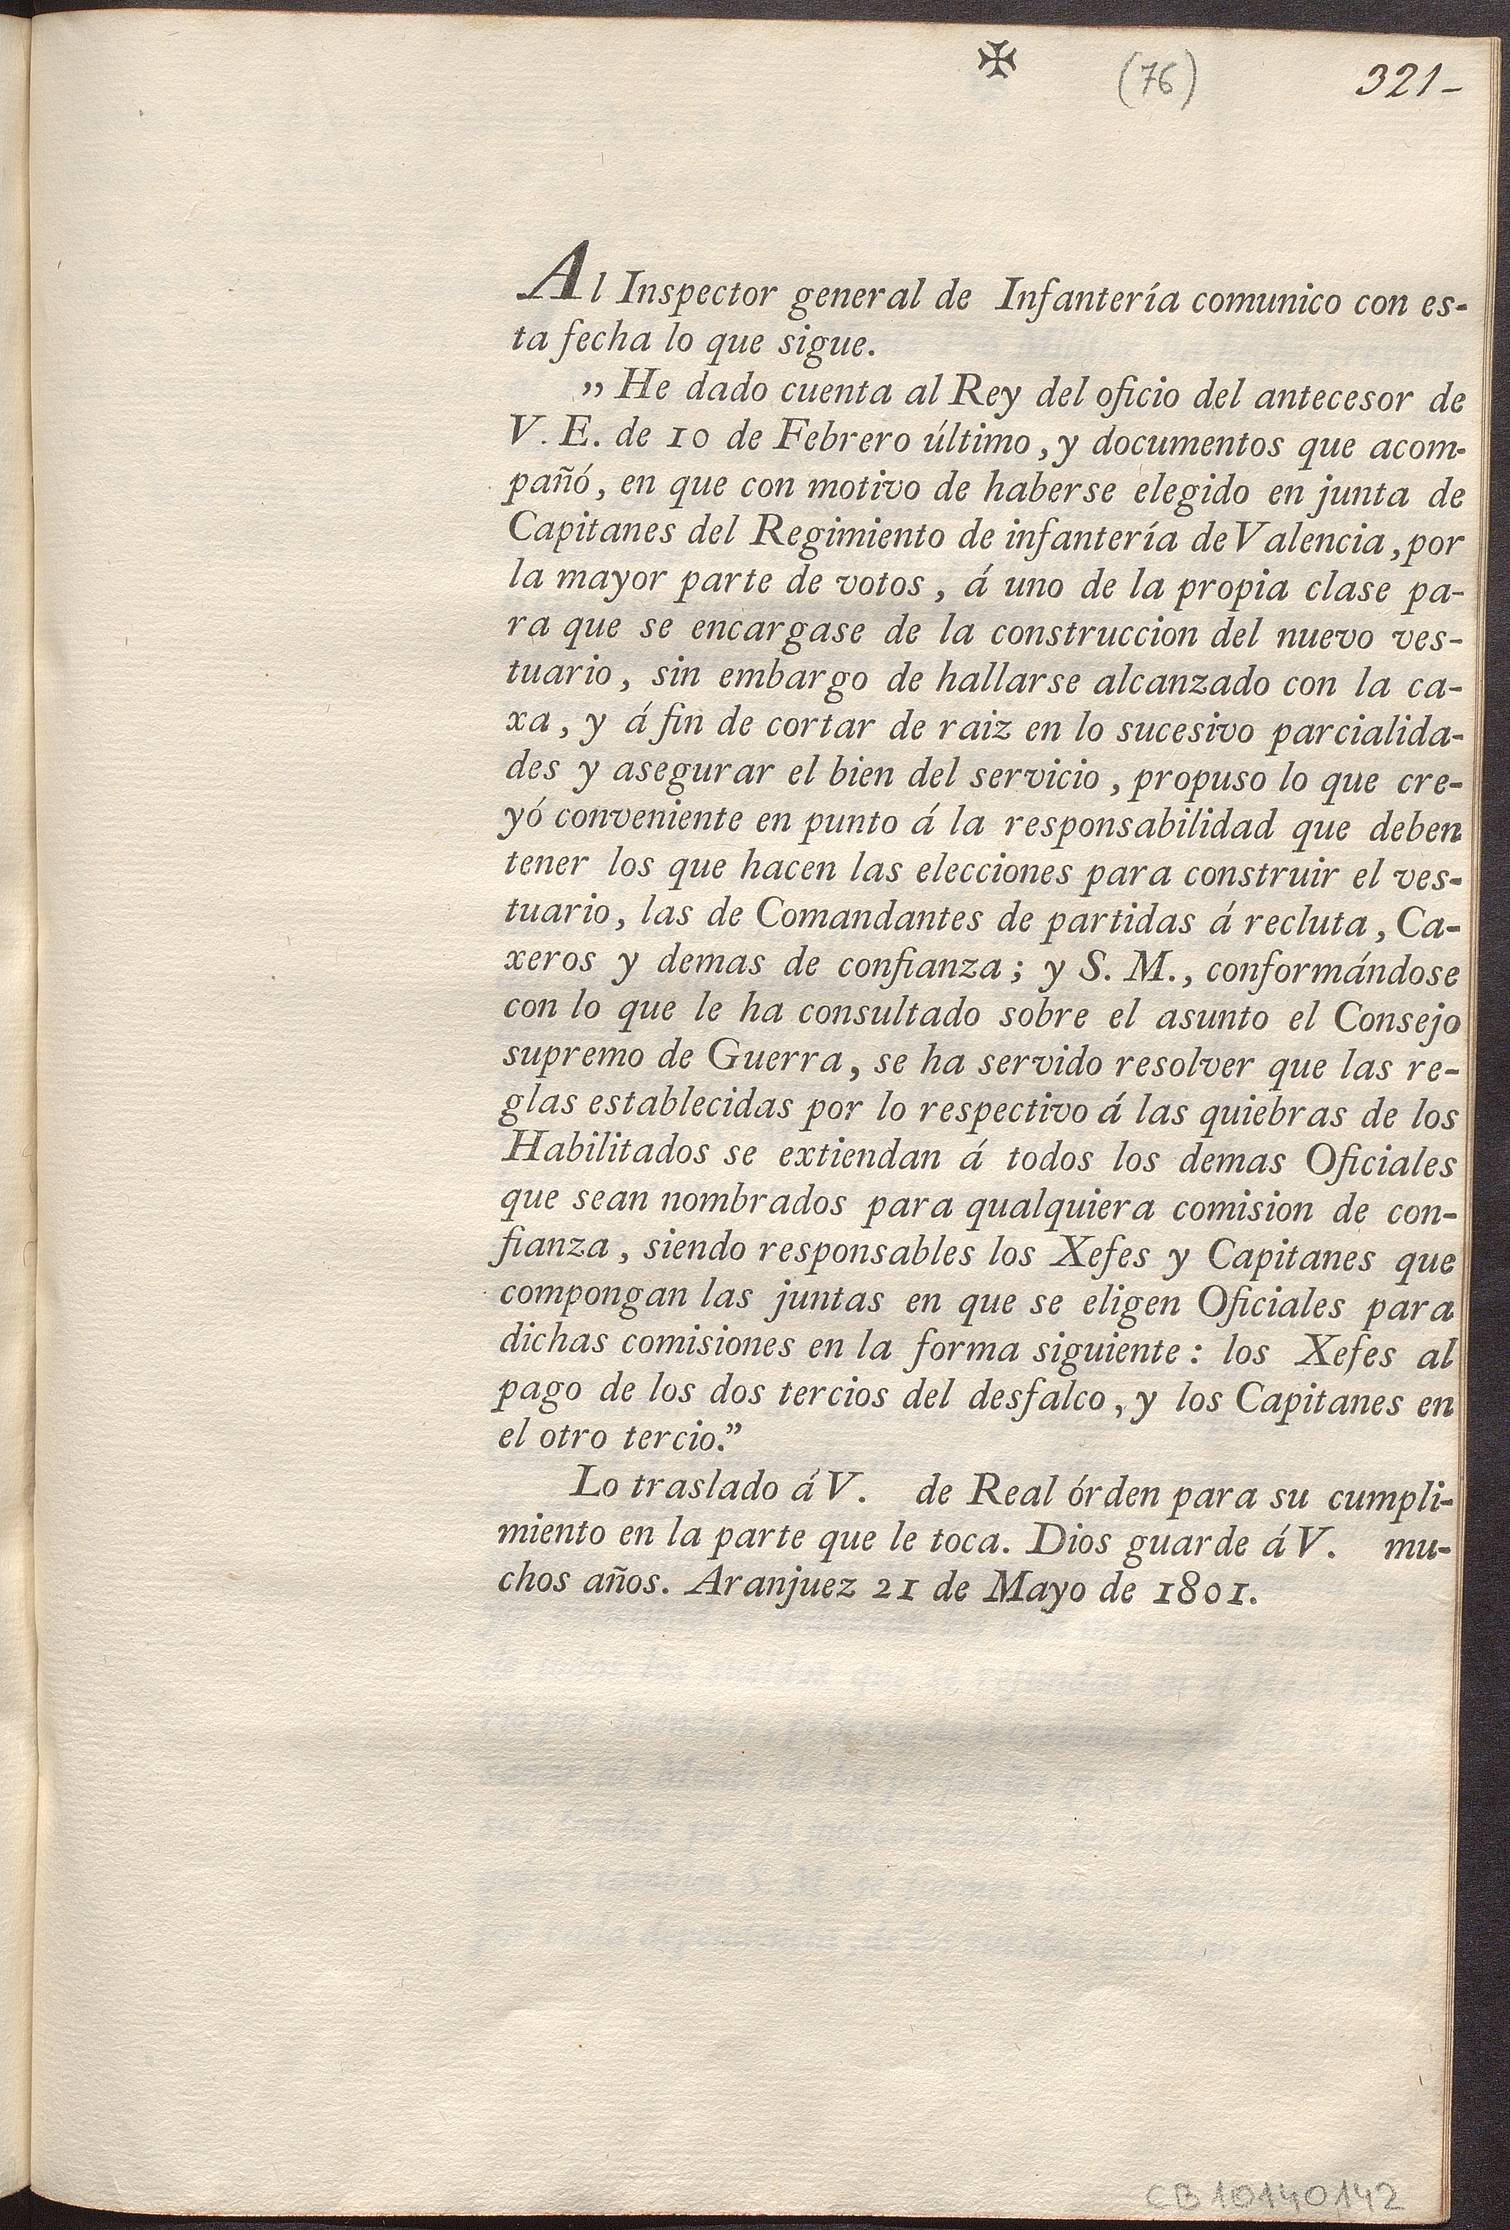 ✠ (76) 321-
Al Inspector general de Infantería comunico con es-
ta fecha lo que sigue.
„ He dado cuenta al Rey del oficio del antecesor de
V. E. de 10 de Febrero último, y documentos que acom-
pañó, en que con motivo de haberse elegido en junta de
Capitanes del Regimiento de infantería de Valencia, por
la mayor parte de votos, á uno de la propia clase pa-
ra que se encargase de la construccion del nuevo ves-
tuario, sin embargo de hallarse alcanzado con la ca-
xa, y á fin de cortar de raiz en lo sucesivo parcialida-
des y asegurar el bien del servicio, propuso lo que cre-
yó conveniente en punto á la responsabilidad que deben
tener los que hacen las elecciones para construir el ves-
tuario, las de Comandantes de partidas á recluta, Ca-
xeros y demas de confianza; y S. M., conformándose
con lo que le ha consultado sobre el asunto el Consejo
supremo de Guerra, se ha servido resolver que las re-
glas establecidas por lo respectivo á las quiebras de los
Habilitados se extiendan á todos los demas Oficiales
que sean nombrados para qualquiera comision de con-
fianza, siendo responsables los Xefes y Capitanes que
compongan las juntas en que se eligen Oficiales para
dichas comisiones en la forma siguiente: los Xefes al
pago de los dos tercios del desfalco, y los Capitanes en
el otro tercio.”
Lo traslado á V. de Real órden para su cumpli-
miento en la parte que le toca. Dios guarde á V. mu-
chos años. Aranjuez 21 de Mayo de 1801.
CB10140142